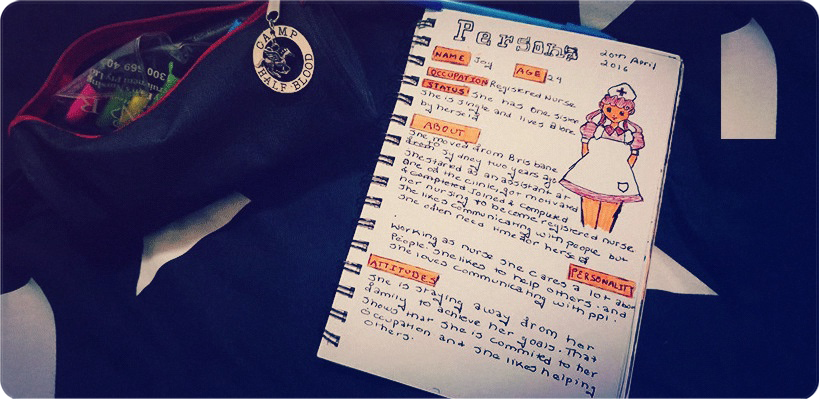 CAMP
HALF BLOOD
300 669 40
Persona
20th April
2016
NAME Joy AGE 29
OCCUPATION Registered Nurse
STATUS She has one sister
She is single and lives alone
by herself
ABOUT
She moved from Brisbane
to Sydney two years ago
She started as an assistant at
one of the clinic, got motivated
& completed Joined & completed
her nursing to become registered nurse.
She likes communicating with people but
she often need time for herself
Working as nurse she cares a lot about
People, she likes to help others. and
she loves communicating with ppl.
PERSONALITY
ATTITUDES
She is staying away from her
family to achieve her goals. That
shows that she is commited to her
occupation and she likes helping
others.